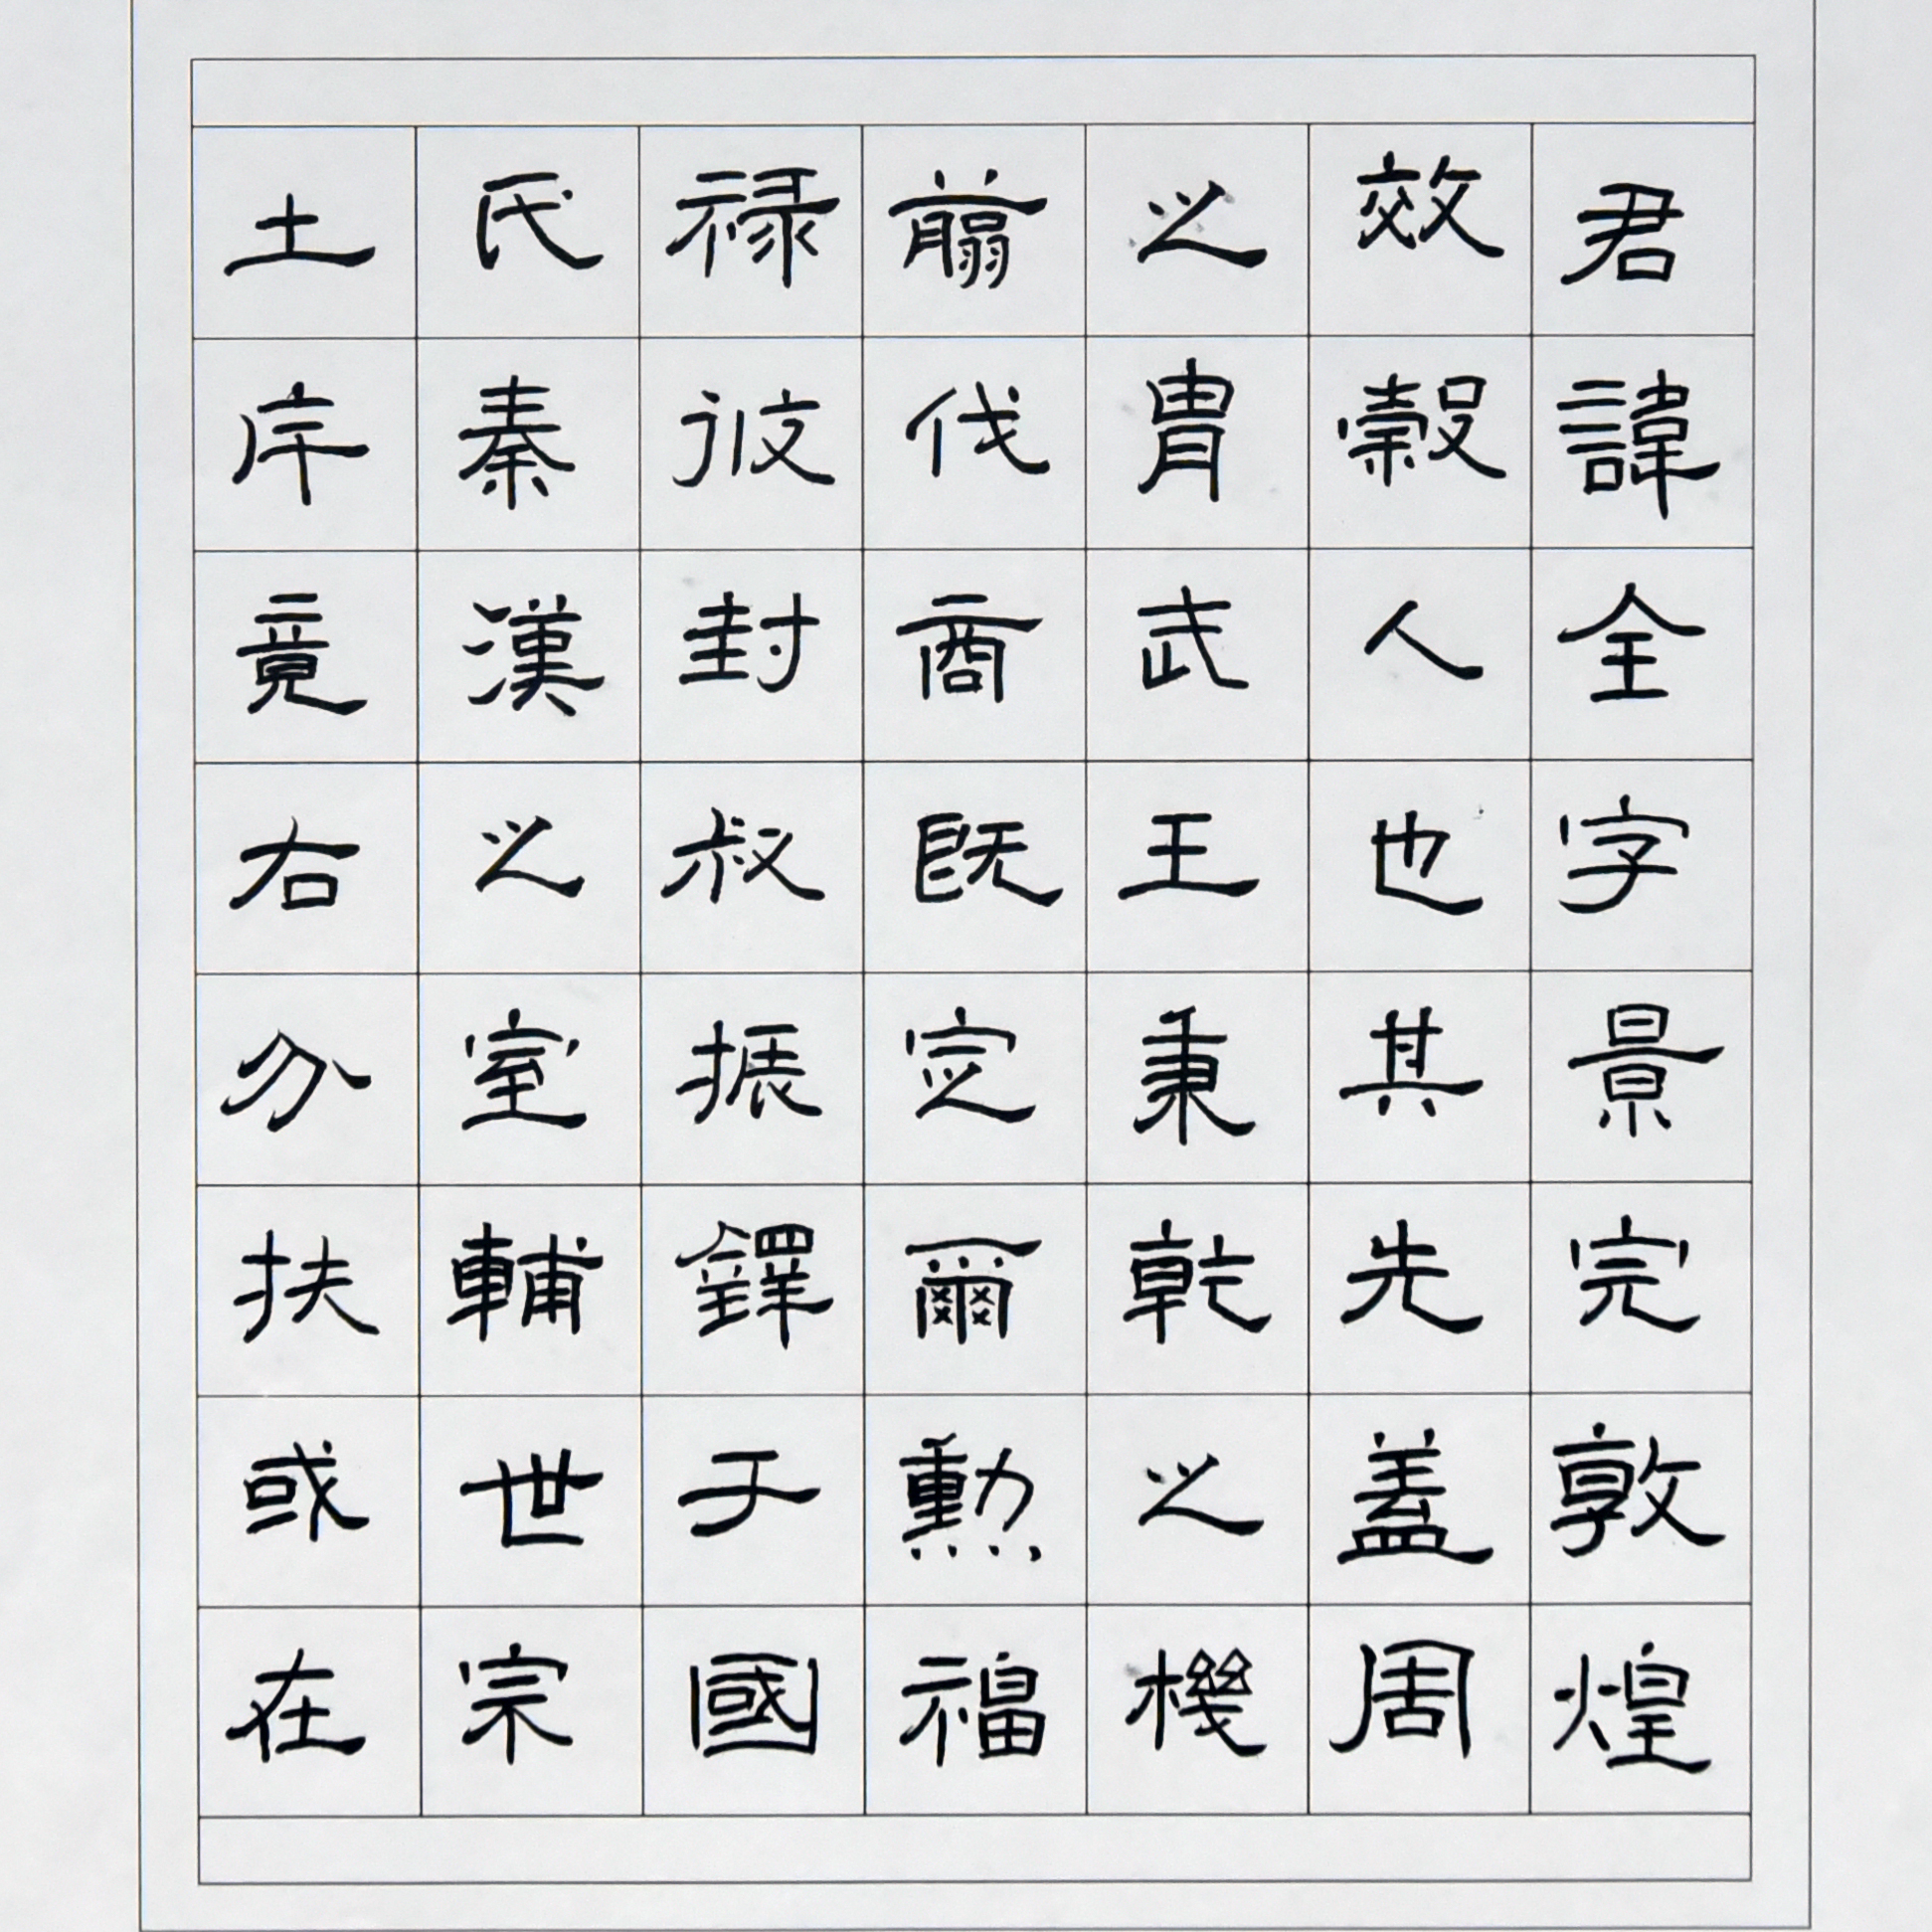 君諱全字景完敦煌
效穀人也其先蓋周
之胄武王秉乾之機
翦伐商既定爾勲福
禄攸封叔振鐸于國
氏秦漢之室輔世宗
土斥竟右分扶或在